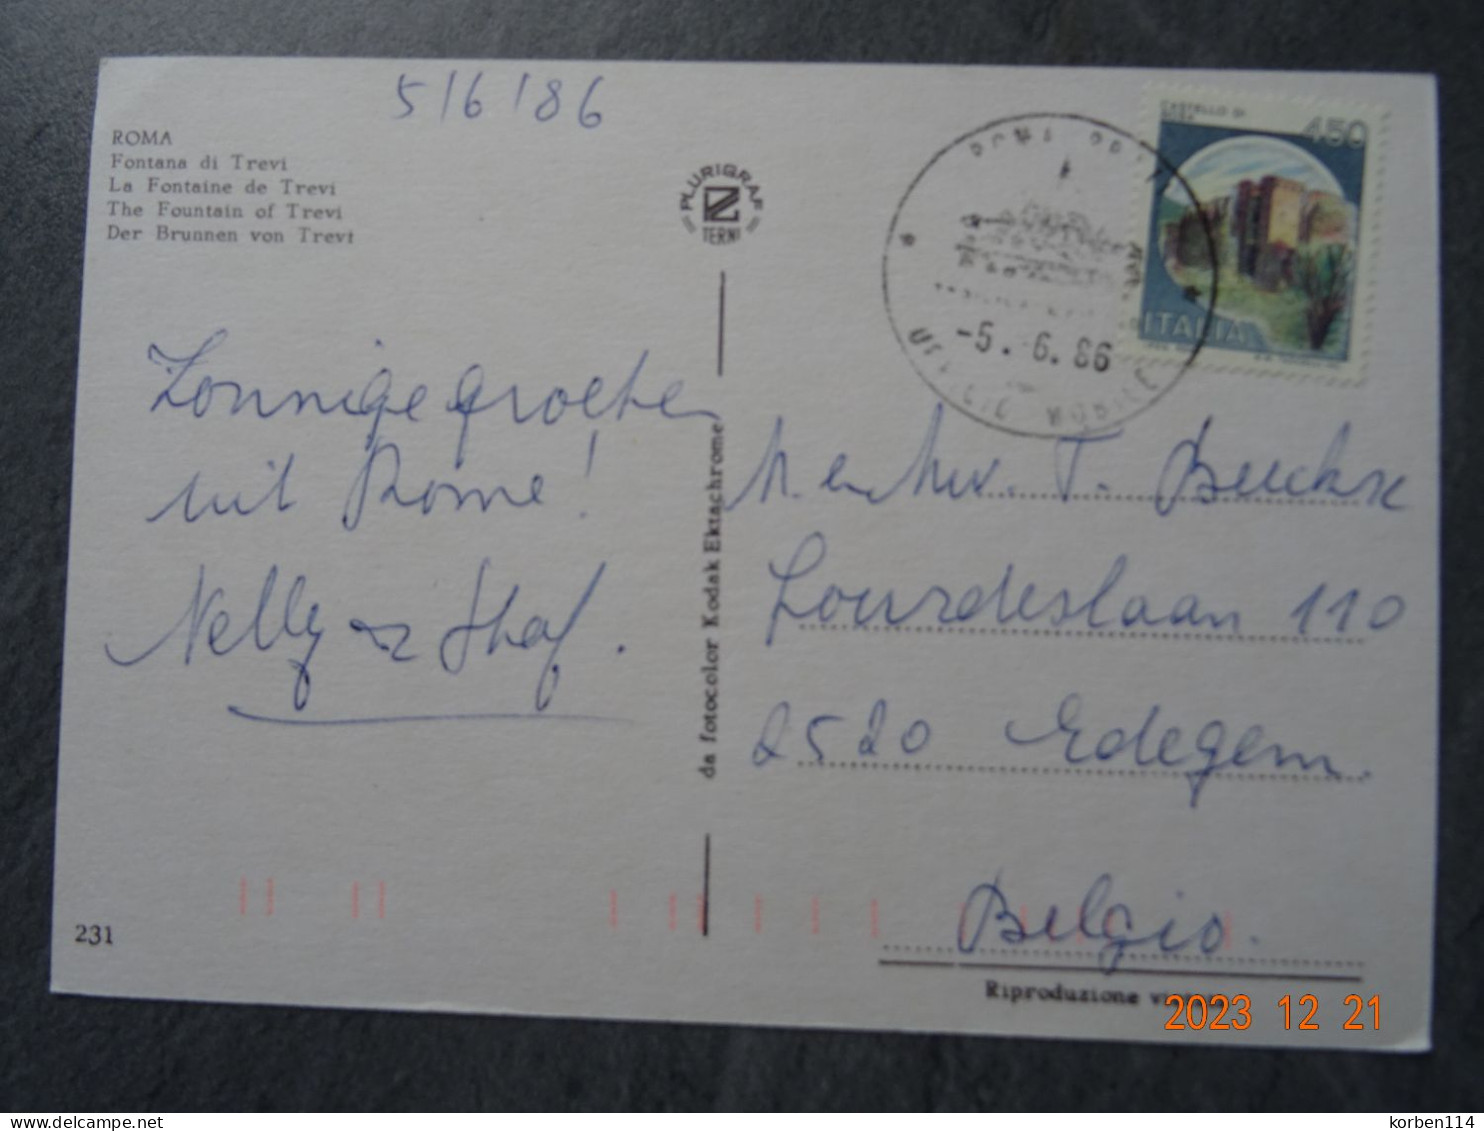 5/6/86
ROMA
Fontana di Trevi
La Fontaine de Trevi
The Fountain of Trevi
Der Brunnen von Trevi
PLURIGRAF
TERNI
CASTELLO DI
450
ITALIA
-5.-6.86
UFFICIO MOBILE
Zonnige groeten
uit Rome!
Nelly
da fotocolor Kodak Ektachrome
M. en Mw. T. Beeckx
Lourdeslaan 110
2520 Edegem.
Belgio.
231
Riproduzione
2023 12 21
delcampe.net
korben114